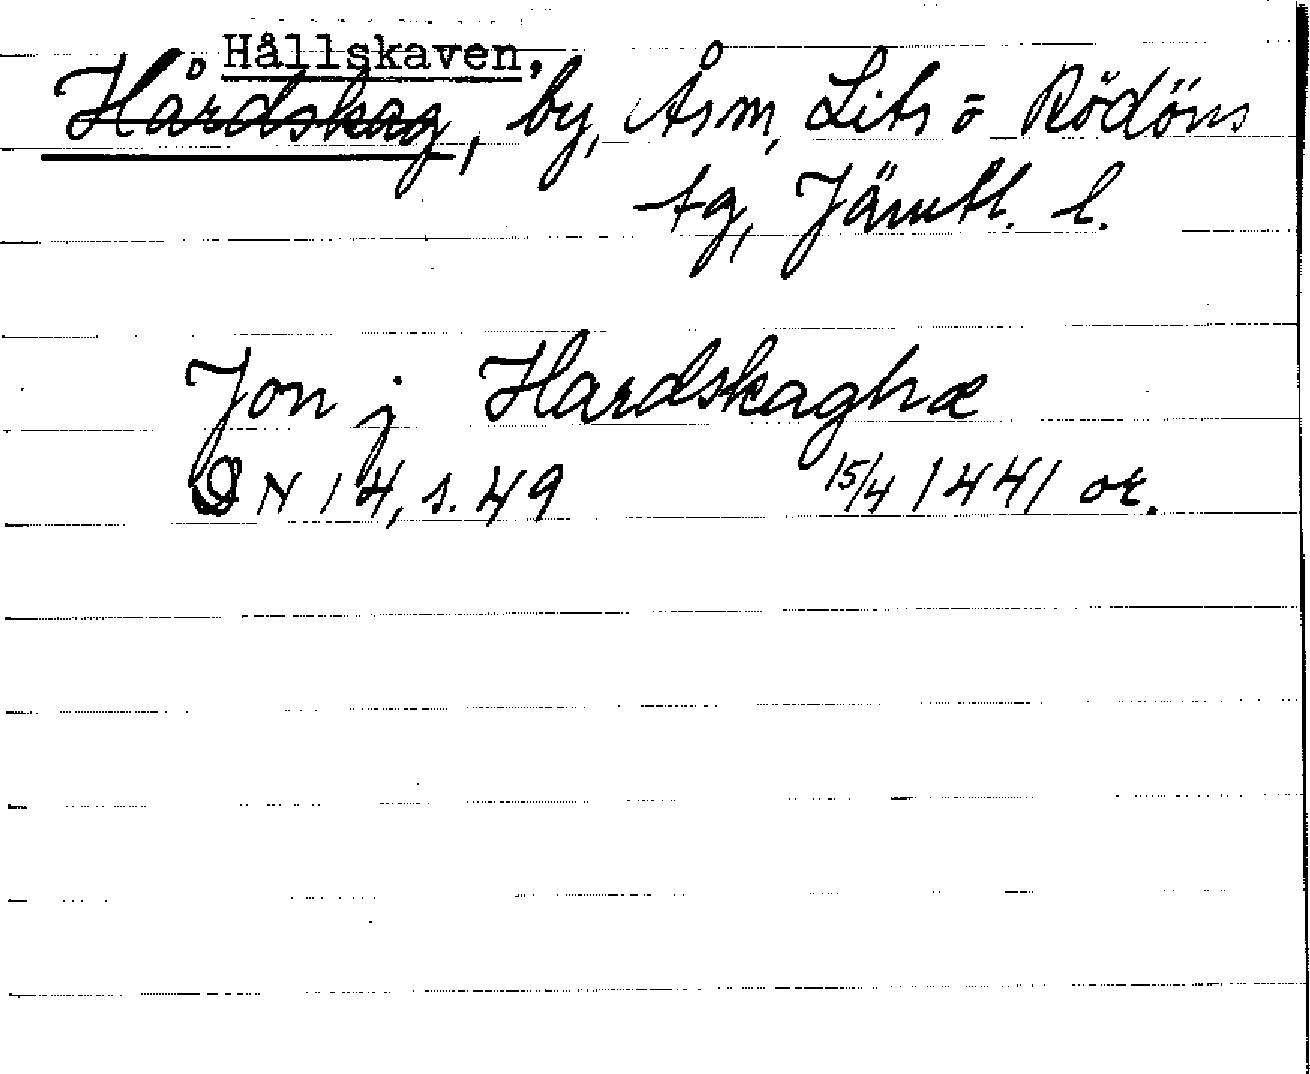 Hållskaven,
Hårdskag, by, Ås sn, Lits o Rödöns
tg, Jämtl. l.
Jon j Hardskaghæ
DN 14, s. 49 15/4 1441 or.